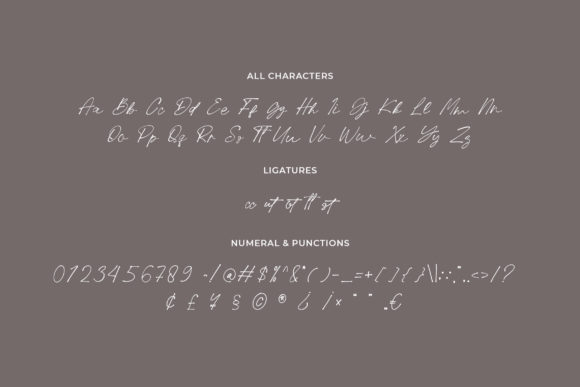 ALL CHARACTERS
Aa Bb Cc Dd Ee Ff Gg Hh Ii Jj Kk Ll Mm Nn
Oo Pp Qq Rr Ss Tt Uu Vv Ww Xx Yy Zz
LIGATURES
cc ut ot tt st
NUMERAL & PUNCTIONS
0123456789 ~!@#$%^&*()-_=+[]{}\|:;'",.<>/?
¢ £ ¥ § © ® ¿ ¡ × “ ” „ €